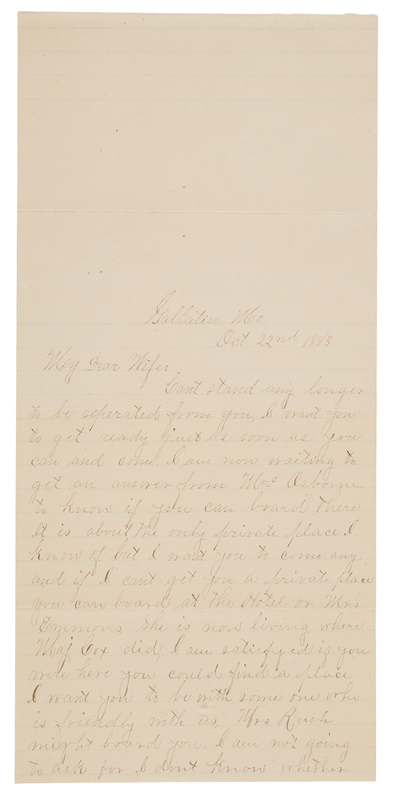 Gallatin Mo
Oct 22nd 1883
My Dear Wife,
Cant stand any longer
to be seperated from you, I want you
to get ready just as soon as you
can and come, I am now waiting to
get an answer from Mrs Osborne
to know if you can board there
It is about the only private place I
know of but I want you to come any
and if I cant get you a private place
you can board at the Hotel or Mrs
Emmons, she is now living where
Maj Cox did, I am satisfyed if you
were here you could find a place
I want you to be with some one who
is friendly with us, Mrs Rush
might board you I am not going
to ask for I dont know whether